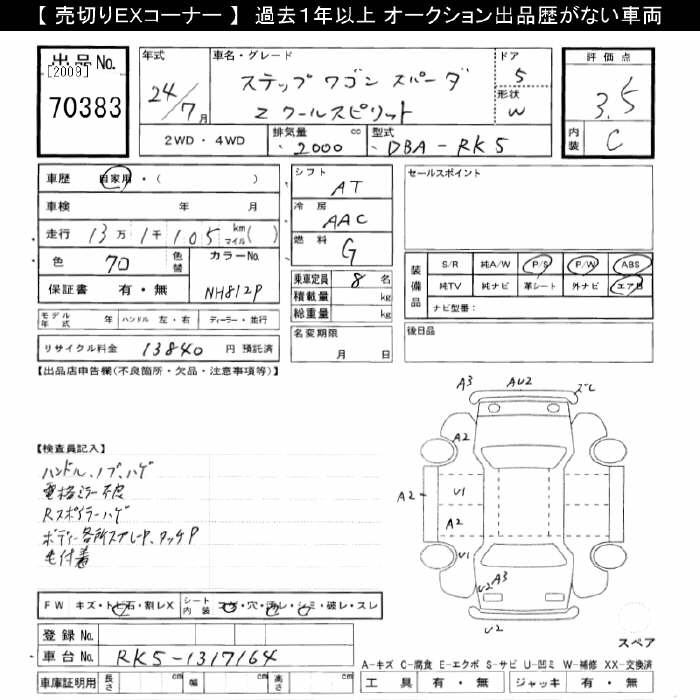 【 売切りEXコーナー 】 過去１年以上 オークション出品歴がない車両
出品No.
[2009]
70383
年式
24/7月
車名・グレード
ステップワゴン スパーダ
Z クールスピリット
ドア
5
形状
W
2WD・4WD
排気量 cc
2000
型式
DBA-RK5
評価点
3.5
内装
C
車歴 自家用・( )
車検 年 月
走行 13万1千105 km マイル( )
色 クロ 色替 カラーNo.
NH812P
保証書 有・無
モデル年式 年 ハンドル 左・右 ディーラー・並行
リサイクル料金 13840 円 預託済
シフト
AT
冷房
AAC
燃料
G
乗車定員 8 名
積載量 kg
総重量 kg
名変期限
月 日
セールスポイント
装備品
S/R 純A/W P/S P/W ABS
純TV 純ナビ 革シート 外ナビ エアB
ナビ型番:
後日品
【出品店申告欄(不良箇所・欠品・注意事項等)】
【検査員記入】
ハンドル、ノブ、ハゲ
電格ミラー不良
Rスポイラーハゲ
ボディー各所スプレーP、タッチP
毛付着
A3 AU2 ズレ
A2
A2 U1
A2
U1
U2 A3
U2
スペア
FW キズ・トビ石・割レX シート内装 コゲ・穴・汚レ・シミ・破レ・スレ
登録No.
車台No. RK5-1317164
車庫証明用 長さ cm 幅 cm 高さ cm
A-キズ C-腐食 E-エクボ S-サビ U-凹ミ W-補修 XX-交換済
工具 有・無 ジャッキ 有・無